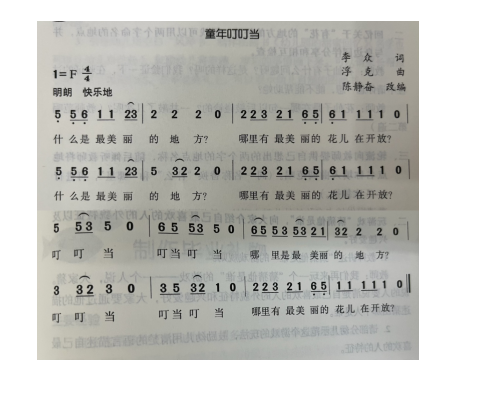 童年叮叮当
李众 词
1=F 4/4
浮克 曲
明朗 快乐地
陈静奋 改编
5 56 11 23 | 2 2 2 0 | 223 21 65 | 61 11 1 0
什么是最美丽 的地方? 哪里有最美丽的花儿在开放?
5 56 11 23 | 5 32 2 0 | 223 21 65 | 61 11 1 0
什么是最美丽 的地方? 哪里有最美丽的花儿在开放?
5 53 5 0 | 65 53 5 0 | 65 53 53 21 | 32 2 2 0
叮叮当 叮当叮当 哪里是最美丽的地方?
3 32 3 0 | 35 32 1 0 | 223 21 65 | 11 11 1 0
叮叮当 叮当叮当 哪里有最美丽的花儿在开放?